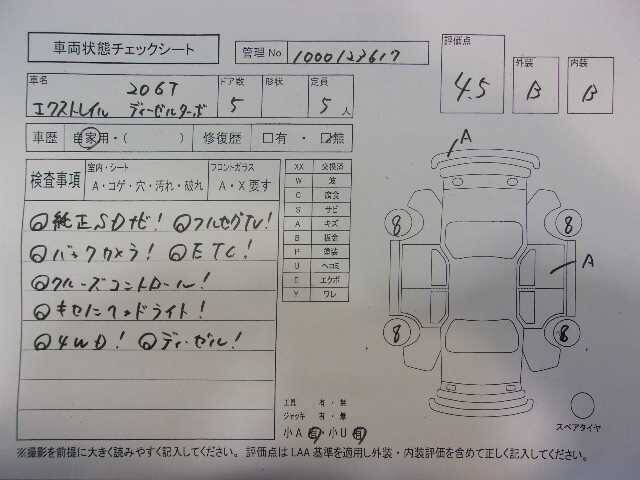 車両状態チェックシート
管理No 1000123617
評価点 4.5
外装 B
内装 B
車名 20GT エクストレイル ディーゼルターボ
ドア数 5
形状
定員 5人
車歴 自家用・( )
修復歴 □有・☑無
検査事項
室内・シート A・コゲ・穴・汚れ・破れ
フロントガラス A・X要す
◎純正SDナビ! ◎フルセグTV!
◎バックカメラ! ◎ETC!
◎クルーズコントロール!
◎キセノンヘッドライト!
◎4WD! ◎ディーゼル!
XX 交換済
W 波
C 腐食
S サビ
A キズ
B 板金
P 塗装
U ヘコミ
E エクボ
Y ワレ
A
8 8
A
8 8
工具 有・無
ジャッキ 有・無
小A有・小U有
スペアタイヤ
※撮影を前提に大きく読みやすく記入してください。 評価点はLAA基準を適用し外装・内装評価を含めて正しく記入してください。